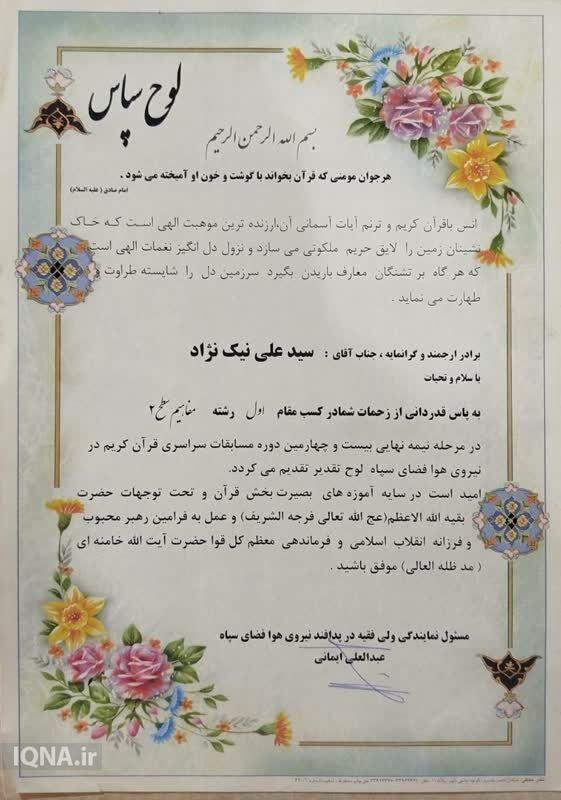 لوح سپاس
بسم الله الرحمن الرحیم
هرجوان مومنی که قرآن بخواند با گوشت و خون او آمیخته می شود .
امام صادق ( علیه السلام)
انس باقرآن کریم و ترنم آیات آسمانی آن،ارزنده ترین موهبت الهی است کـه خـاک
نشینان زمین را لایق حریم ملکوتی می سازد و نزول دل انگیز نغمات الهی است
که هر گاه بر تشنگان معارف باریدن بگیرد سرزمین دل را شایسته طراوت و
طهارت می نماید .
برادر ارجمند و گرانمایه ، جناب آقای : سید علی نیک نژاد
با سلام و تحیات
به پاس قدردانی از زحمات شمادر کسب مقام اول رشته مفاهیم سطح ۲
در مرحله نیمه نهایی بیست و چهارمین دوره مسابقات سراسری قرآن کریم در
نیروی هوا فضای سپاه لوح تقدیر تقدیم می گردد.
امید است در سایه آموزه های بصیرت بخش قرآن و تحت توجهات حضرت
بقیه الله الاعظم(عج الله تعالی فرجه الشریف) و عمل به فرامین رهبر محبوب
و فرزانه انقلاب اسلامی و فرماندهی معظم کل قوا حضرت آیت الله خامنه ای
( مد ظله العالی) موفق باشید .
مسئول نمایندگی ولی فقیه در پدافند نیروی هوا فضای سپاه
عبدالعلی ایمانی
IQNA.ir